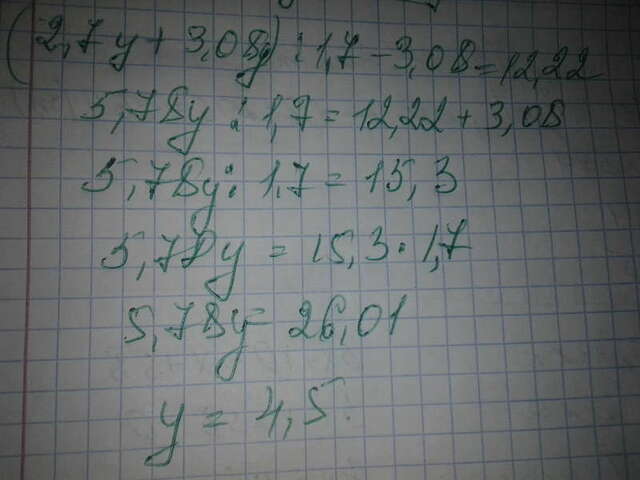 (2,7y + 3,08y) : 1,7 - 3,08 = 12,22
5,78y : 1,7 = 12,22 + 3,08
5,78y : 1,7 = 15,3
5,78y = 15,3 · 1,7
5,78y = 26,01
y = 4,5.